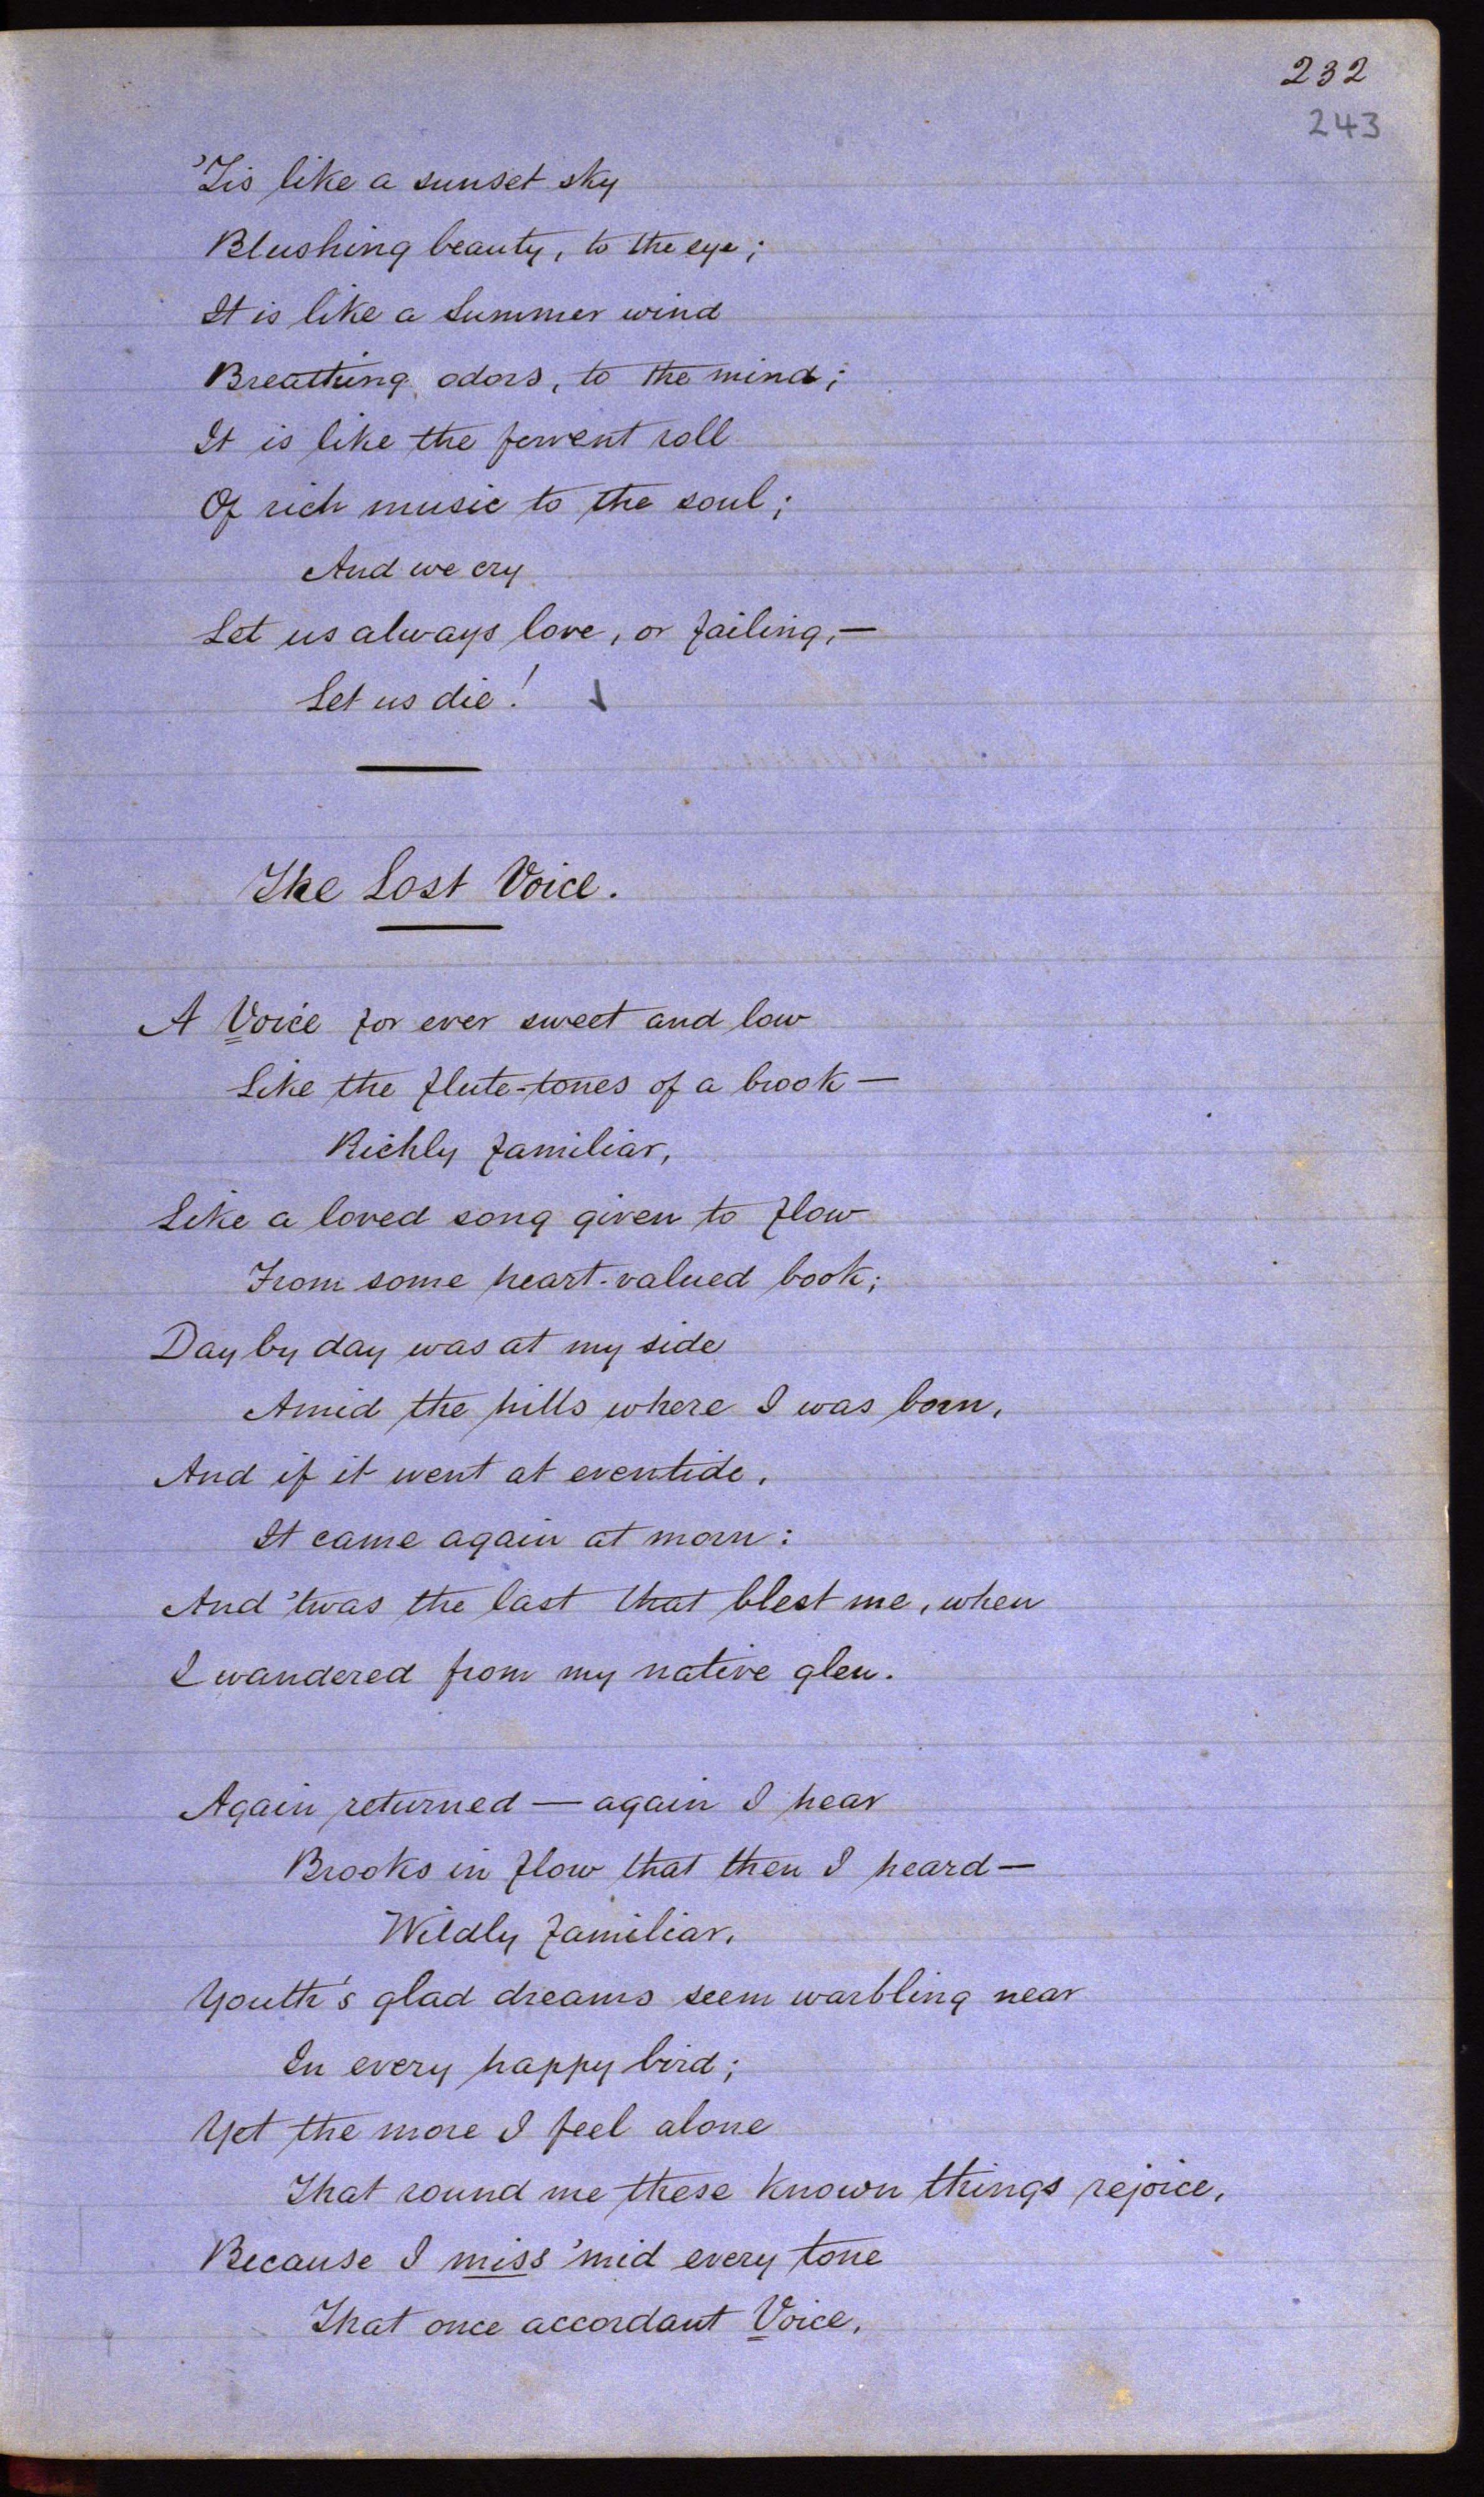 232
243
'Tis like a sunset sky
Blushing beauty, to the eye;
It is like a Summer wind
Breathing odors, to the mind;
It is like the fervent roll
Of rich music to the soul;
And we cry
Let us always love, or failing,—
Let us die!
The Lost Voice.
A Voice for ever sweet and low
Like the flute-tones of a brook—
Richly familiar,
Like a loved song given to flow
From some heart-valued book;
Day by day was at my side
Amid the hills where I was born,
And if it went at eventide,
It came again at morn:
And 'twas the last that blest me, when
I wandered from my native glen.
Again returned — again I hear
Brooks in flow that then I heard—
Wildly familiar,
Youth's glad dreams seem warbling near
In every happy bird;
Yet the more I feel alone
That round me these known things rejoice,
Because I miss 'mid every tone
That once accordant Voice,